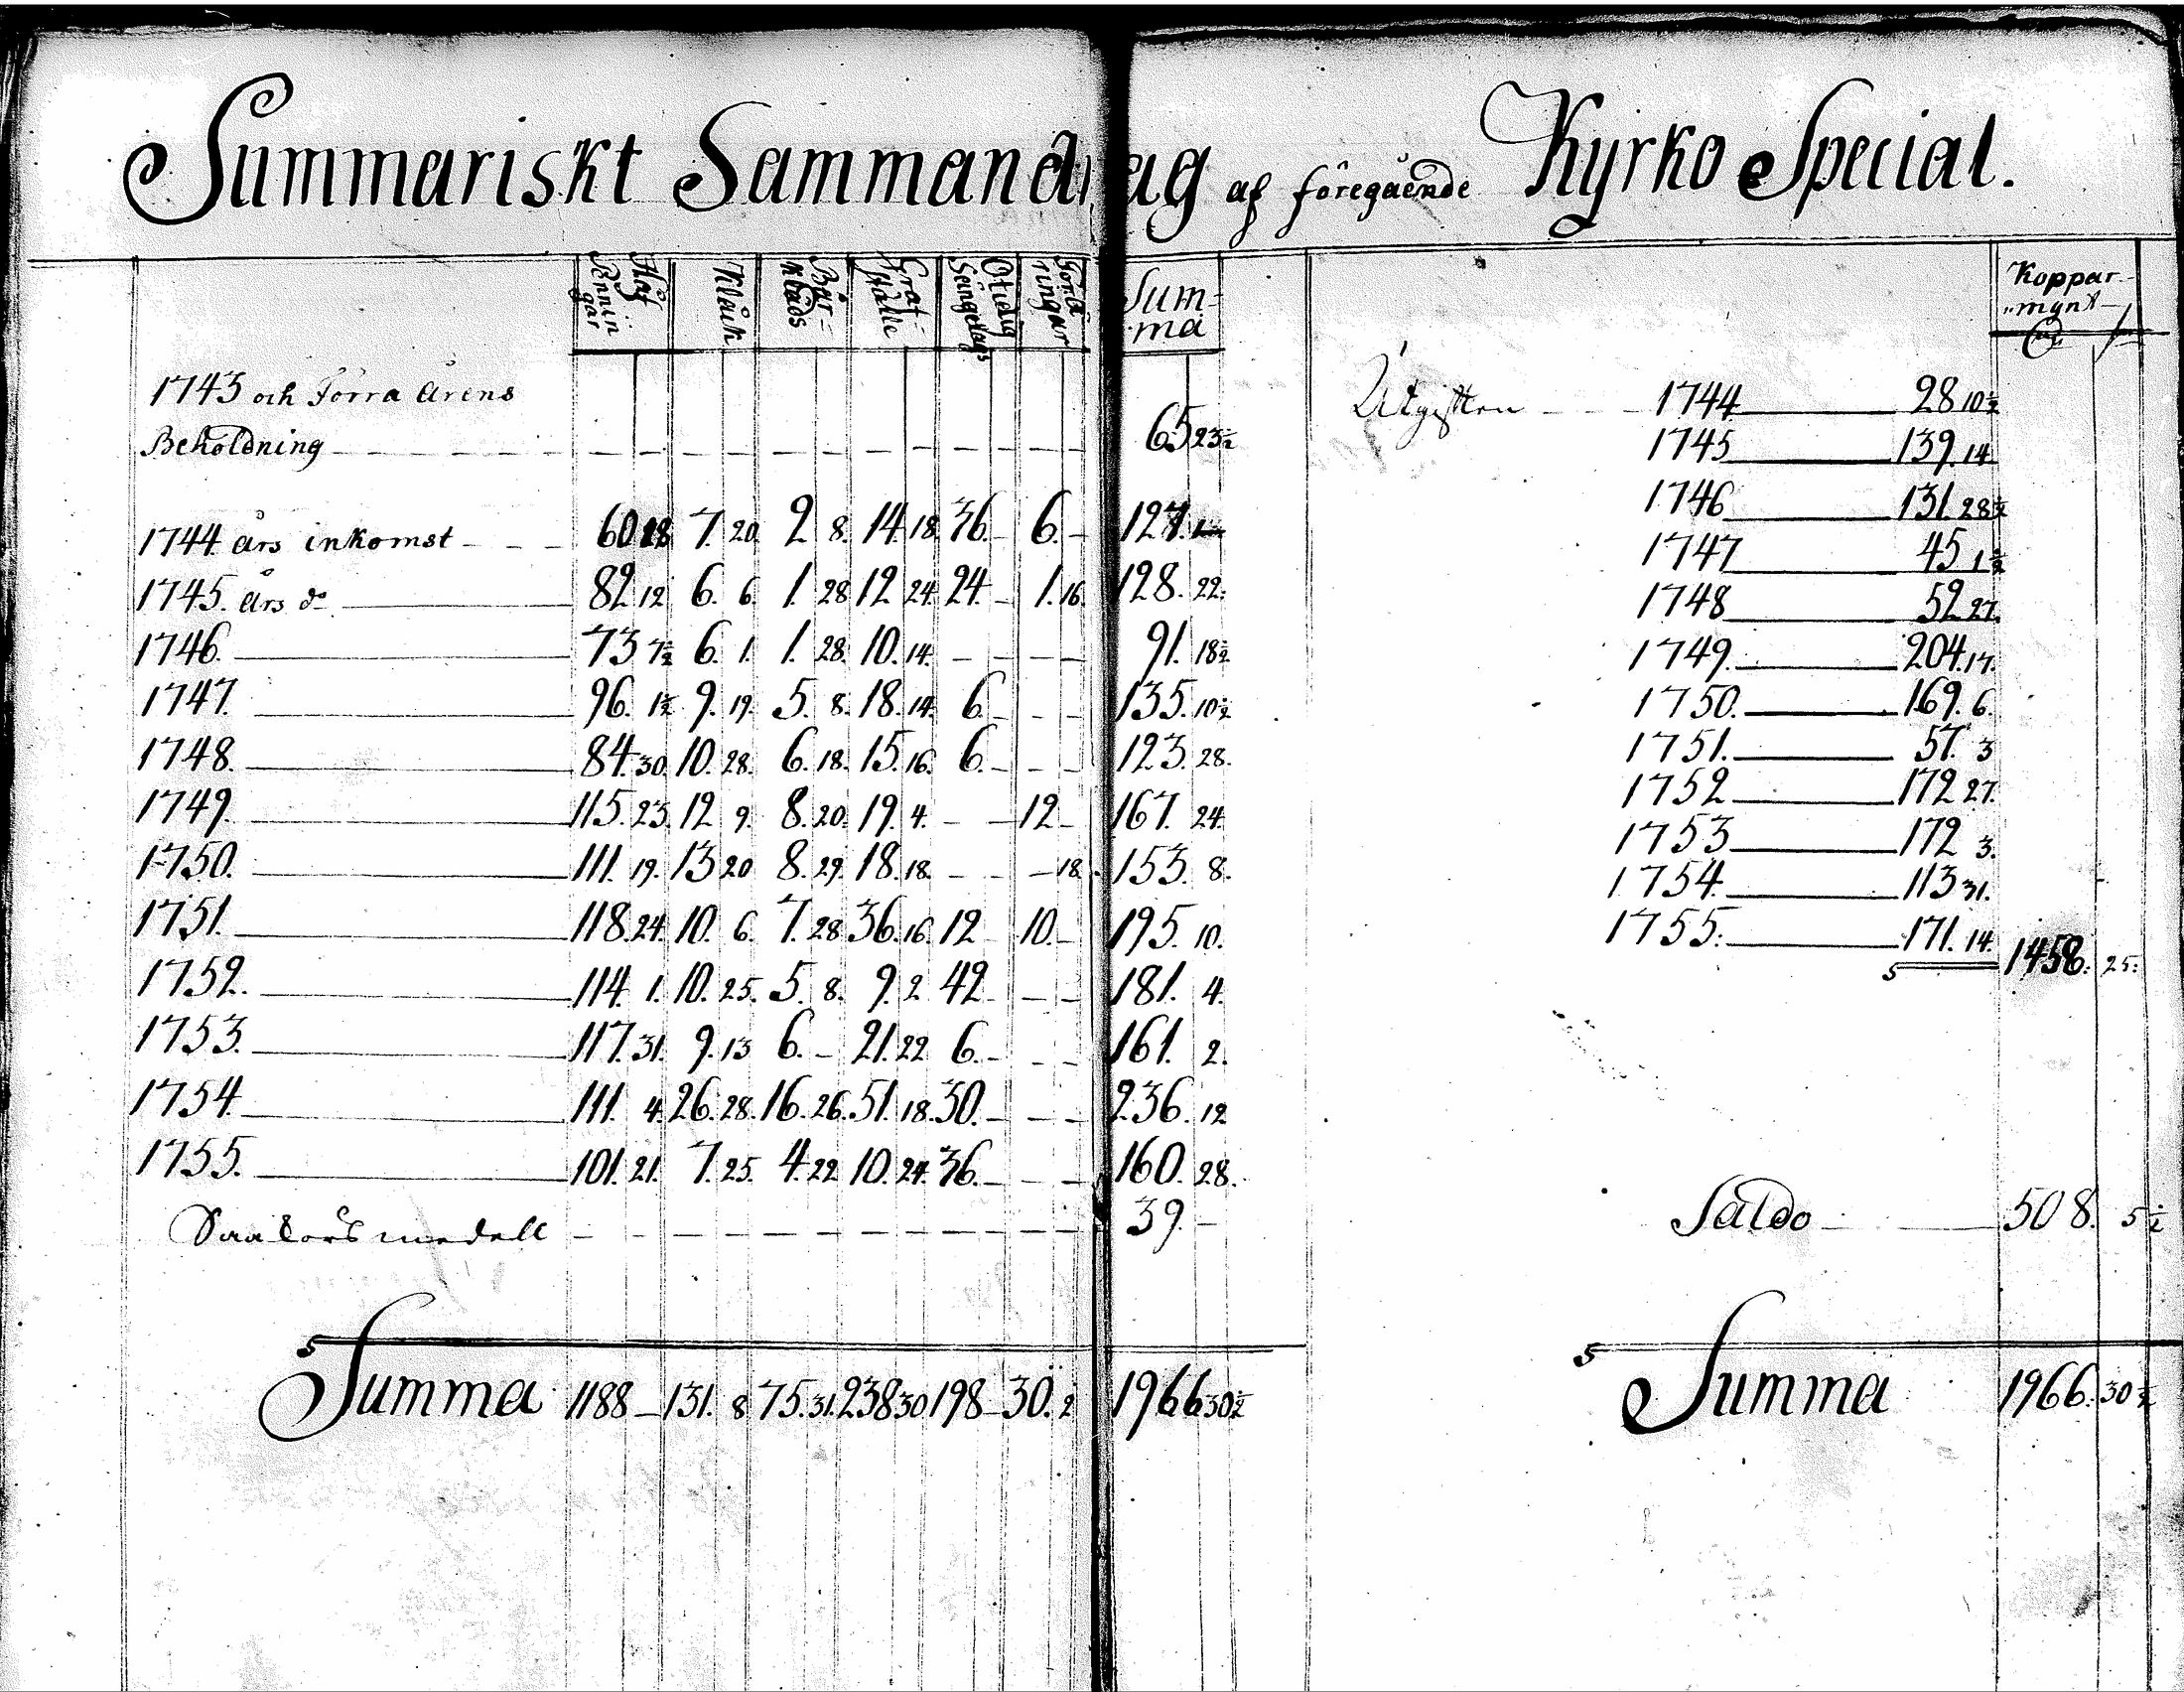 Summariskt Sammandrag af föregående Kyrko Special.
Håf Pennin gar Klåck Bår= Klåds Graf= Ställe Otidig Sängelags Förä ringar Sum= ma
1743 och Förra Årens
Beholdning 65 23½
1744 års inkomst 60 28 7. 20. 2 8. 14. 18. 36. 6. 127.
1745. års do 82 12 6. 6. 1. 28 12 24. 24. 1. 16. 128. 22.
1746. 73 7½ 6. 1. 1. 28. 10. 14. 91. 18½
1747. 96. 1½ 9. 19. 5. 8. 18. 14. 6. 135. 10½
1748. 84. 30. 10. 28. 6. 18. 15. 16. 6. 123. 28.
1749. 115. 23. 12 9. 8. 20. 19. 4. 12 167. 24.
1750. 111. 19. 13 20 8. 29. 18. 18. 18. 153. 8.
1751. 118. 24. 10. 6. 7. 28 36. 16. 12 10. 195. 10.
1752. 114. 1. 10. 25. 5. 8. 9. 2 42 181. 4.
1753. 117. 31. 9. 13 6. 21. 22 6. 161. 2.
1754. 111. 4. 26. 28. 16. 26. 51. 18. 30. 236. 12
1755. 101. 21. 7. 25. 4. 22 10. 24. 36. 160. 28.
medell 39.
Summa 1188 131. 8 75. 31. 238 30 198 30. 2 1966 30½
Koppar-
mynt
Utgiften 1744 28 10½
1745 139. 14
1746 131. 28½
1747 45 1½
1748 52 27.
1749. 204. 17.
1750. 169. 6.
1751. 57. 3
1752 172 27.
1753 172 3.
1754. 113 31.
1755. 171. 14. 1458. 25.
Saldo 508. 5½
Summa 1966. 30½